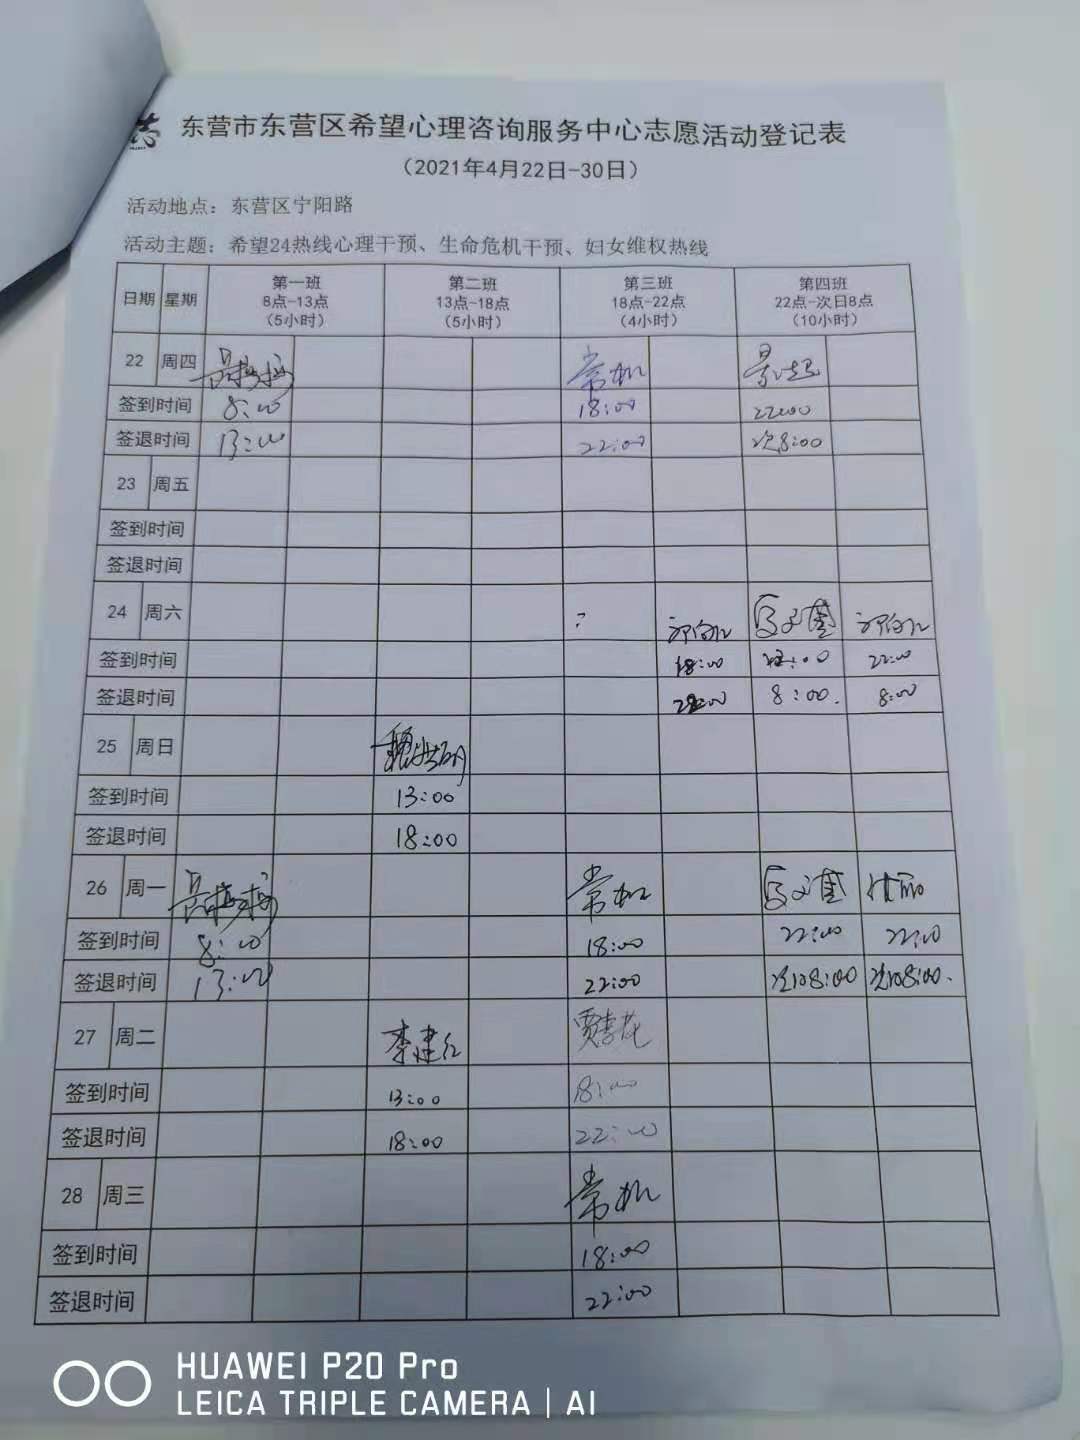 东营市东营区希望心理咨询服务中心志愿活动登记表
（2021年4月22日-30日）
活动地点：东营区宁阳路
活动主题：希望24热线心理干预、生命危机干预、妇女维权热线
日期 星期 第一班 第二班 第三班 第四班
8点-13点 13点-18点 18点-22点 22点-次日8点
（5小时） （5小时） （4小时） （10小时）
22 周四
签到时间 8:00 18:00 22:00
签退时间 13:00 22:00 次8:00
23 周五
签到时间
签退时间
24 周六
签到时间 18:00 22:00
签退时间 8:00. 8:00
25 周日
签到时间 13:00
签退时间 18:00
26 周一
签到时间 8:00 18:00 22:00 22:00
签退时间 13:00 22:00 次日8:00 次日8:00.
27 周二 李建红
签到时间 13:00 18:00
签退时间 18:00 22:00
28 周三
签到时间 18:00
签退时间 22:00
HUAWEI P20 Pro
LEICA TRIPLE CAMERA | AI